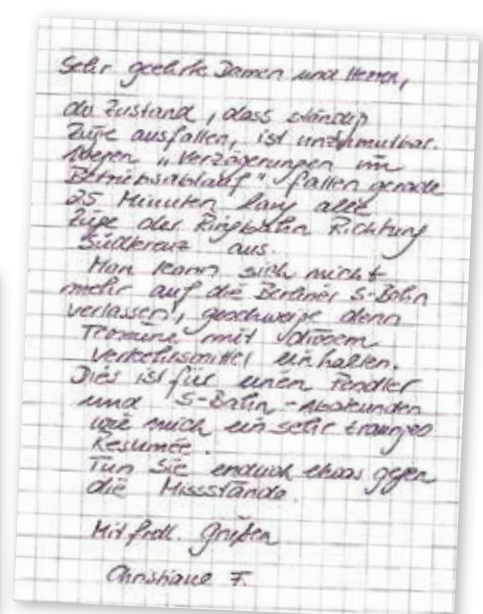 Sehr geehrte Damen und Herren,
der Zustand, dass ständig
Züge ausfallen, ist unzumutbar.
Wegen „Verzögerungen im
Betriebsablauf" fallen gerade
25 Minuten lang alle
Züge der Ringbahn Richtung
Südkreuz aus.
Man kann sich nicht
mehr auf die Berliner S-Bahn
verlassen, geschweige denn
Termine mit diesem
Verkehrsmittel einhalten.
Dies ist für einen Pendler
und S-Bahn-Abokunden
wie mich ein sehr trauriges
Resumée.
Tun Sie endlich etwas gegen
die Missstände.
Mit frdl. Grüßen
Christiane F.